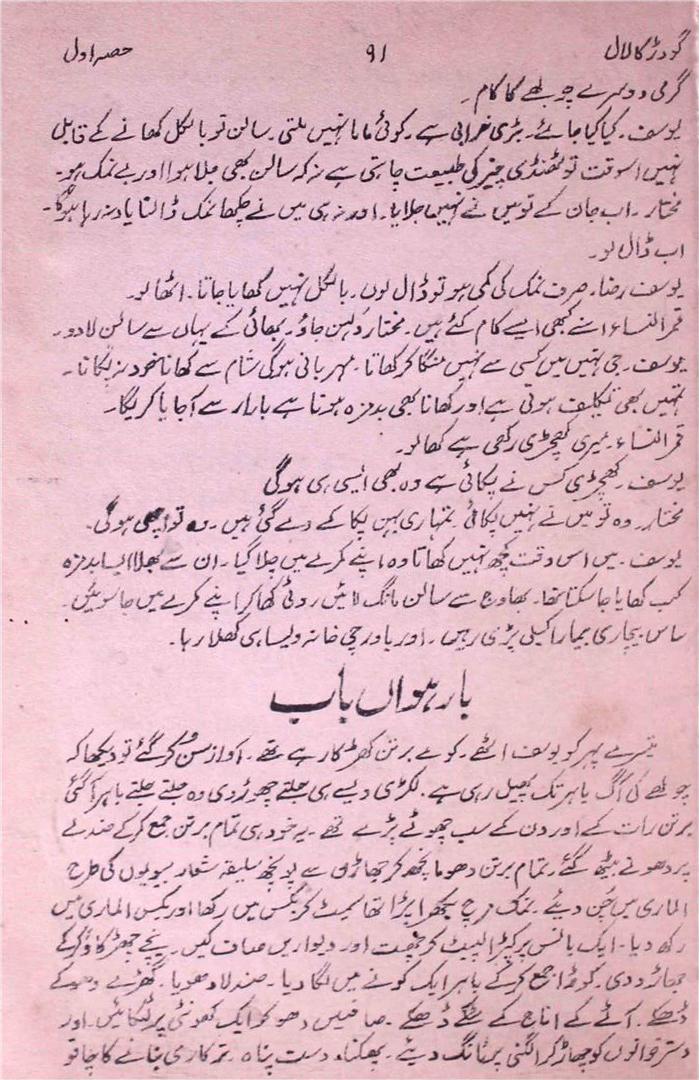 گودڑ کا لال ۹۱ حصہ اول
گرمی دوسرے چولھے کا کام۔
یوسف۔ کیا کیا جائے۔ بڑی خرابی ہے۔ کوئی ماما نہیں ملتی۔ سالن تو بالکل کھانے کے قابل
نہیں اسوقت تو ٹھنڈی چیز کی طبیعت چاہتی ہے نہ کہ سالن بھی جلا ہوا اور بے نمک ہو۔
مختار۔ اب جان کے تو میں نے نہیں جلایا۔ اور نہ ہی میں نے چکھا نمک ڈالنا یاد نہ رہا ہوگا۔
اب ڈال لو۔
یوسف رضا۔ صرف نمک کی کمی ہو تو ڈال لوں۔ بالکل نہیں کھایا جاتا۔ اٹھا لو۔
قمر النساء۔ اسنے کبھی ایسے کام کئے ہیں۔ مختار دلہن جاؤ۔ بھائی کے یہاں سے سالن لادو۔
یوسف۔ جی نہیں میں کسی سے نہیں منگا کر کھاتا۔ مہربانی ہوگی شام سے کھانا خود نہ پکانا۔
تمہیں بھی تکلیف ہوتی ہے اور کھانا بھی بدمزہ ہوتا ہے بازار سے آجایا کریگا۔
قمر النساء۔ میری کھچڑی رکھی ہے کھالو۔
یوسف۔ کھچڑی کس نے پکائی ہے وہ بھی ایسی ہی ہوگی
مختار۔ وہ تو میں نے نہیں پکائی تمہاری بہن پکا کے دے گئی ہیں۔ وہ تو اچھی ہوگی۔
یوسف۔ میں اس وقت کچھ نہیں کھاتا وہ اپنے کمرے میں چلا گیا۔ ان سے بھلا ایسا بدمزہ
کب کھایا جاسکتا تھا۔ بھاوج سے سالن مانگ لائیں روٹی کھا کر اپنے کمرے میں جا سوئیں۔
ساس بیچاری بیمار اکیلی پڑی رہیں۔ اور باورچی خانہ ویسا ہی کھلا رہا۔
بارہواں باب
تیسرے پہر کو یوسف اٹھے۔ کوے برتن کھڑکا رہے تھے۔ آواز سن کر گئے تو دیکھا کہ
چولھے کی آگ باہر تک پھیل رہی ہے۔ لکڑی ویسے ہی جلتے چھوڑ دی وہ جلتے جلتے باہر آگئی
برتن رات کے اور دن کے سب جھوٹے پڑے تھے۔ یہ خود ہی تمام برتن جمع کر کے صندلے
پر دھونے بیٹھ گئے۔ تمام برتن دھو مانجھ کر جھاڑن سے پونچھ سلیقہ شعار بیویوں کی طرح
الماری میں چن دیئے۔ نمک مرچ بکھرا پڑا تھا سمیٹ کر بکس میں رکھا اور بکس الماری میں
رکھ دیا۔ ایک بانس پر کپڑا لپیٹ کر چھت اور دیواریں صاف کیں۔ نیچے چھڑکاؤ کر کے
جھاڑو دی۔ کوڑا جمع کر کے باہر ایک کونے میں لگا دیا۔ صندلا دھویا۔ گھڑے دھو کے
ڈھکے۔ آٹے کے اناج کے مٹکے ڈھکے۔ صافیں دھو کر ایک کھونٹی پر لٹکائیں۔ اور
دسترخوانوں کو جھاڑ کر الگنی پر ٹانگ دیئے۔ پھکنا۔ دست پناہ۔ ترکاری بنانے کا چاقو